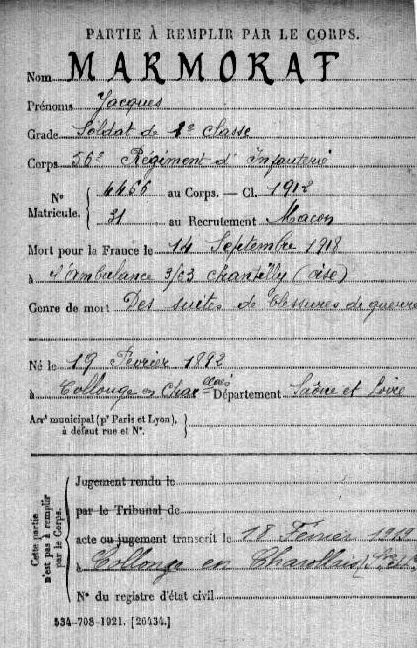 PARTIE À REMPLIR PAR LE CORPS.
Nom MARMORAT
Prénoms Jacques
Grade Soldat de 2e Classe
Corps 56e Régiment d'Infanterie
N° Matricule. { 4466 au Corps. — Cl. 1912
31 au Recrutement Macon
Mort pour la France le 14 Septembre 1918
à l'ambulance 3/63 Chantilly (oise)
Genre de mort Des suites de blessures de guerre
Né le 19 Février 1892
à Collonge en Charolais Département Saône et Loire
Arrt municipal (pr Paris et Lyon), à défaut rue et N°. }
Cette partie n'est pas à remplir par le Corps.
Jugement rendu le
par le Tribunal de
acte ou jugement transcrit le 18 Février 1919
à Collonge en Charollais
N° du registre d'état civil
534-708-1921. [26434.]